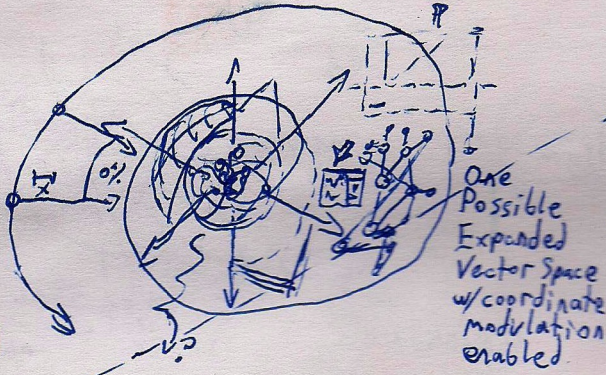 One
Possible
Expanded
Vector Space
w/coordinate
modulation
enabled